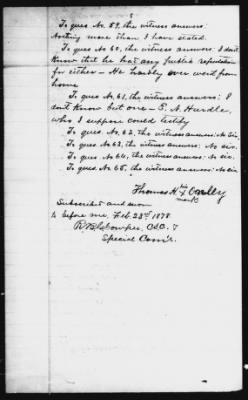 5
To ques No. 59, the witness answers:
Nothing more than I have stated.
To ques No 60, the witness answers: I don't
know that he had any public reputation
for either - He hardly ever went from
home
To ques No. 61, the witness answers: I
dont know but one - E. N. Hurdle,
who I suppose could testify
To ques No. 62, the witness answers: No sir.
To ques No. 63, the witness answers: No sir.
To ques No. 64, the witness answers: No sir.
To ques No. 65, the witness answers: No sir
his
Thomas H. X
mark
Subscribed and sworn
to before me, Feb 23d 1878
C.S.C. &
Special Com'r.